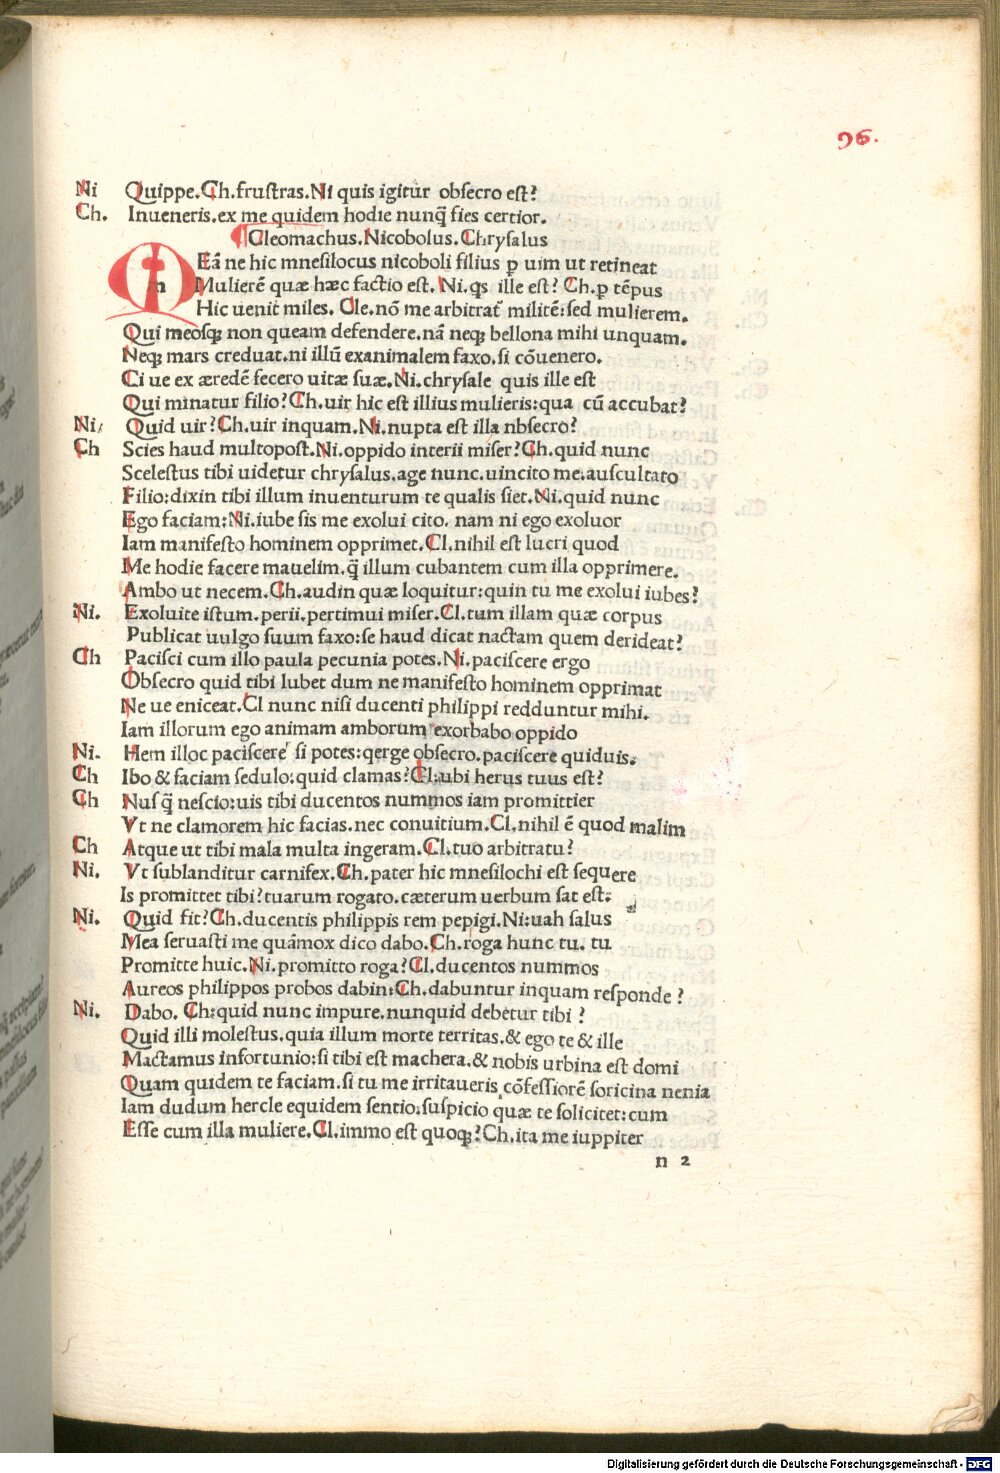 96.
Ni Quippe.Ch.frustras.Ni quis igitur obsecro est?
Ch. Inueneris.ex me quidem hodie nunq̃ fies certior.
Cleomachus.Nicobolus.Chrysalus
m Eã ne hic mnesilocus nicoboli filius ꝑ uim ut retineat
Mulierẽ quæ hæc factio est. Ni.q̃s ille est? Ch.ꝑ tẽpus
Hic uenit miles. Cle.nõ me arbitrat᷑ militẽ:sed mulierem.
Qui meosqꝫ non queam defendere.nã neqꝫ bellona mihi unquam.
Neqꝫ mars creduat.ni illũ exanimalem faxo.si cõuenero.
Ci ue ex æredẽ fecero uitæ suæ.Ni.chrysale quis ille est
Qui minatur filio?Ch.uir hic est illius mulieris:qua cũ accubat?
Ni. Quid uir?Ch.uir inquam.Ni.nupta est illa nbsecro?
Ch Scies haud multopost.Ni.oppido interii miser?Ch.quid nunc
Scelestus tibi uidetur chrysalus.age nunc.uincito me.auscultato
Filio:dixin tibi illum inuenturum te qualis siet.Ni.quid nunc
Ego faciam:Ni.iube sis me exolui cito. nam ni ego exoluor
Iam manifesto hominem opprimet.Cl.nihil est lucri quod
Me hodie facere mauelim.q̃ illum cubantem cum illa opprimere.
Ambo ut necem.Ch.audin quæ loquitur:quin tu me exolui iubes?
Ni. Exoluite istum.perii.pertimui miser.Cl.tum illam quæ corpus
Publicat uulgo suum faxo:se haud dicat nactam quem derideat?
Ch Pacisci cum illo paula pecunia potes.Ni.paciscere ergo
Obsecro quid tibi lubet dum ne manifesto hominem opprimat
Ne ue eniceat.Cl nunc nisi ducenti philippi redduntur mihi.
Iam illorum ego animam amborum exorbabo oppido
Ni. Hem illoc paciscere si potes:qerge obsecro.paciscere quiduis.
Ch Ibo & faciam sedulo:quid clamas?Cl:ubi herus tuus est?
Ch Nusq̃ nescio:uis tibi ducentos nummos iam promittier
Vt ne clamorem hic facias.nec conuitium.Cl.nihil ẽ quod malim
Ch Atque ut tibi mala multa ingeram.Cl.tuo arbitratu?
Ni. Vt sublanditur carnifex.Ch.pater hic mnesilochi est sequere
Is promittet tibi?tuarum rogato.cæterum uerbum sat est.
Ni. Quid fit?Ch.ducentis philippis rem pepigi.Ni:uah salus
Mea seruasti me quãmox dico dabo.Ch.roga hunc tu. tu
Promitte huic.Ni.promitto roga?Cl.ducentos nummos
Aureos philippos probos dabin:Ch.dabuntur inquam responde ?
Ni. Dabo. Ch:quid nunc impure.nunquid debetur tibi ?
Quid illi molestus.quia illum morte territas.& ego te & ille
Mactamus infortunio:si tibi est machera.& nobis urbina est domi
Quam quidem te faciam.si tu me irritaueris cõfessiorẽ soricina nenia
Iam dudum hercle equidem sentio:suspicio quæ te solicitet:cum
Esse cum illa muliere.Cl.immo est quoqꝫ?Ch.ita me iuppiter
n 2
Digitalisierung gefördert durch die Deutsche Forschungsgemeinschaft - DFG